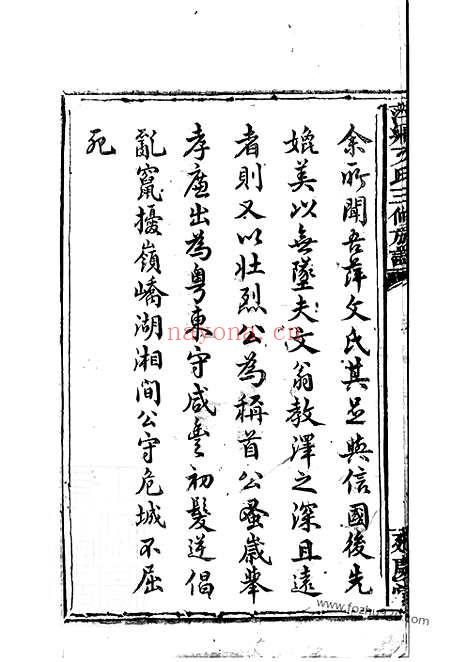 余所聞吾萍文氏其足與信國後先
媲美以無墜夫文翁教澤之深且遠
者則又以壯烈公為稱首公蚤歲舉
孝廉出為粵東守咸豐初髮逆倡
亂竄擾嶺嶠湖湘間公守危城不屈
死
nayona.cn
www.fozhu